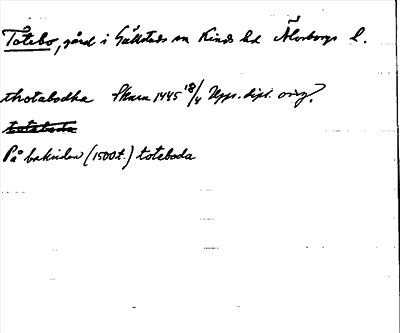 Tåtebo, gård i Gällstads sn Kinds hd Älvsborgs l.
thotabodha Skara 1445 18/4 Upps. dipl. orig.
totaboda
På baksidan (1500 t.) totaboda